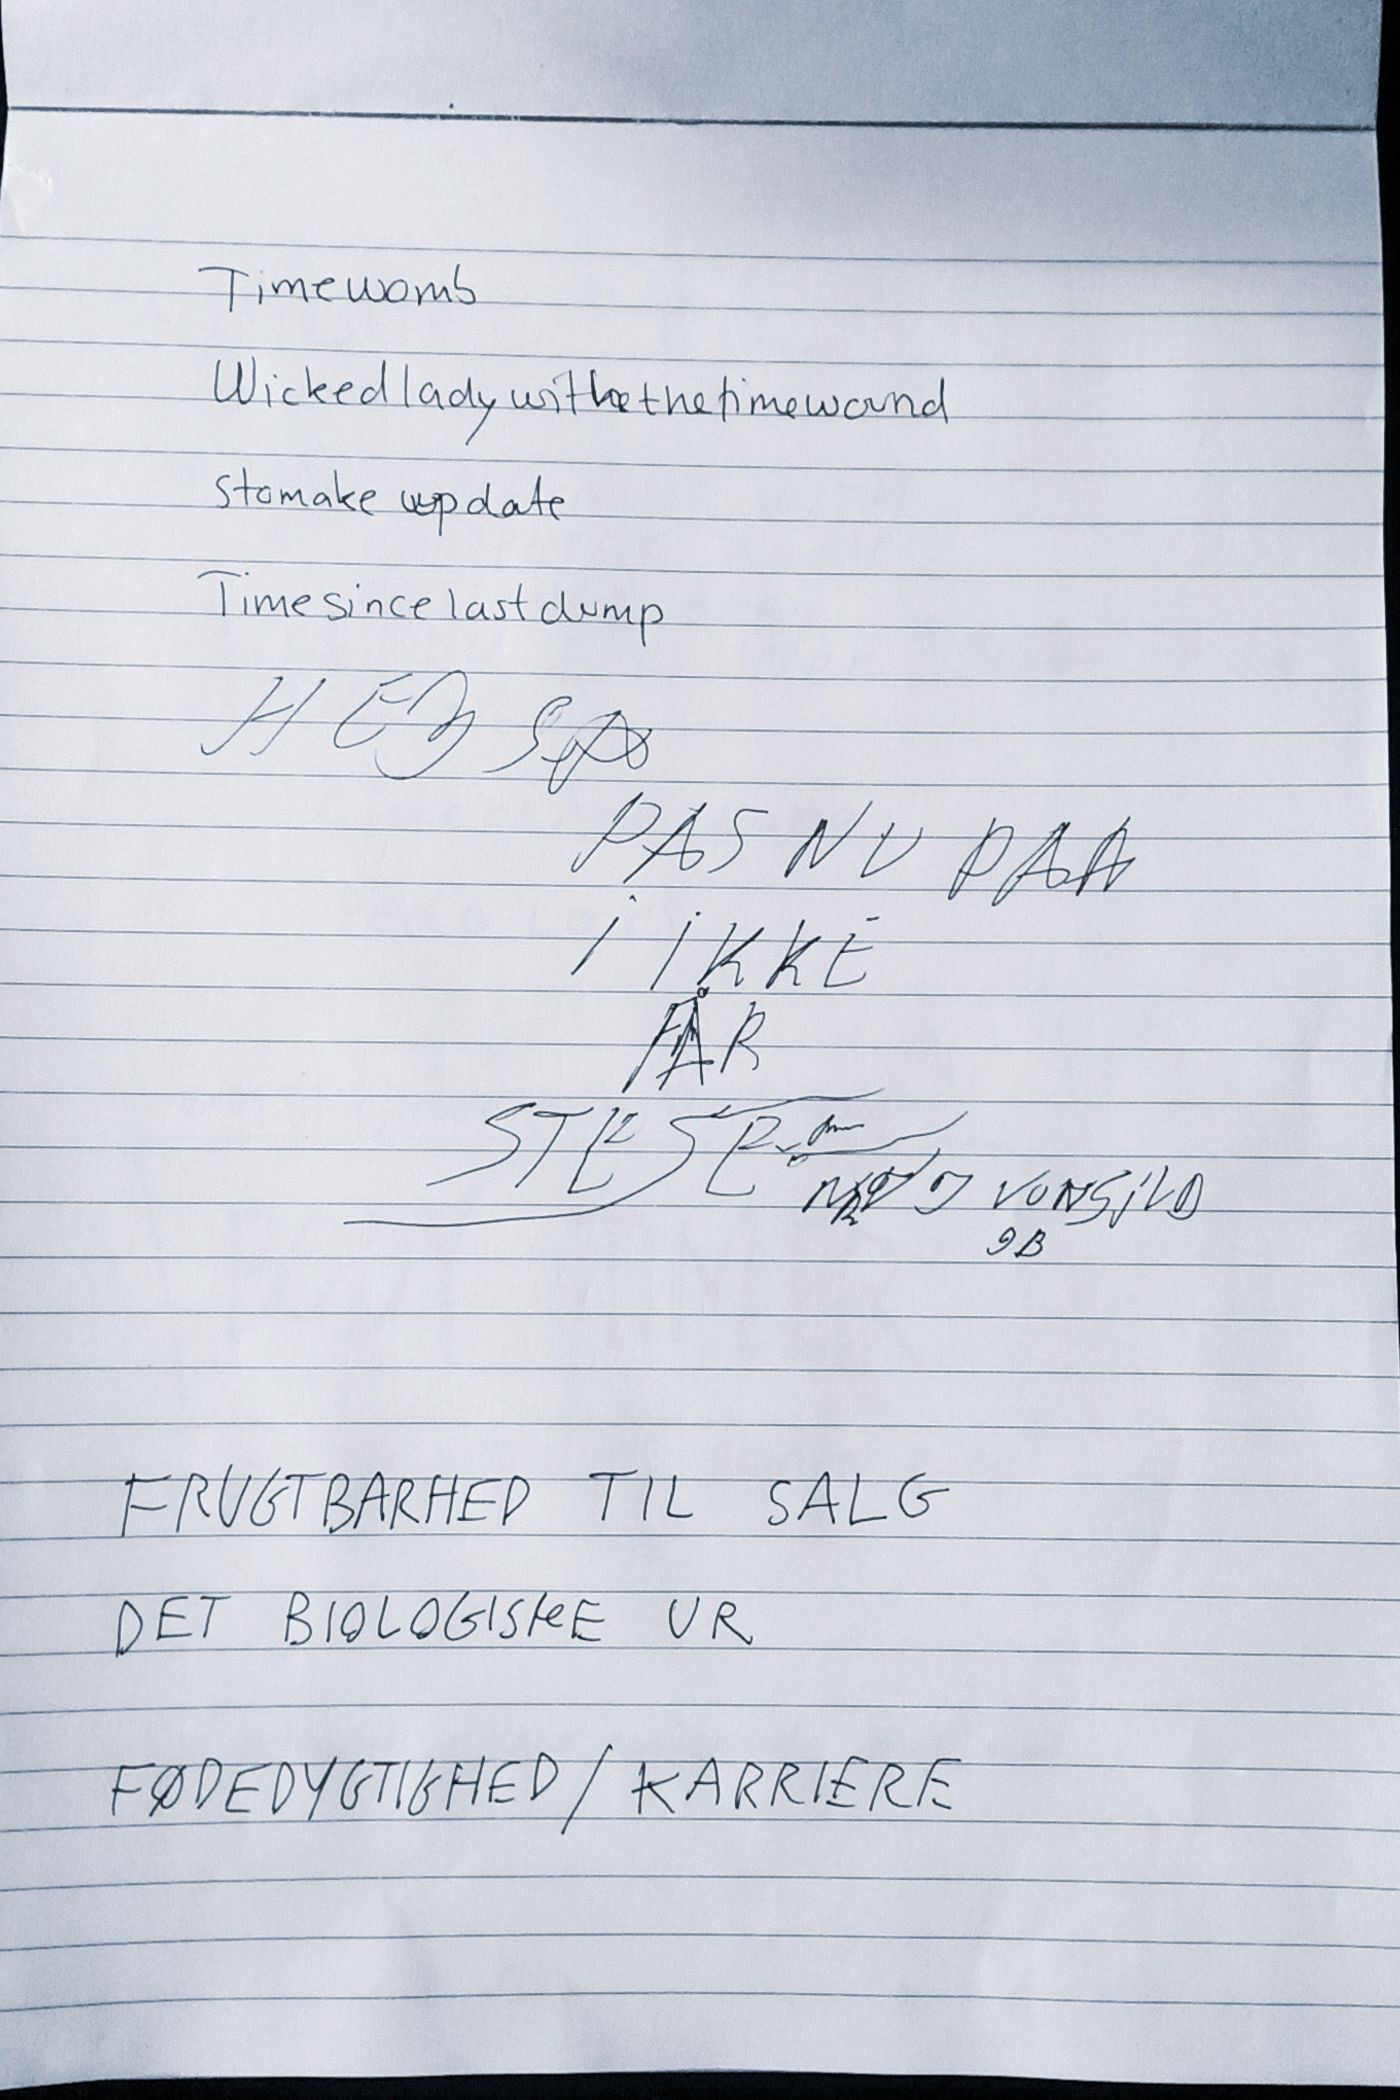 Timewomb
Wickedladywithethetimewound
stomake update
Timesincelastdump
HEJ
PAS NU PAA
i iKKE
FÅR
VONSiLD
9B
FRUGTBARHED TIL SALG
DET BIOLOGISKE UR
FØDEDYGTIGHED/KARRIERE